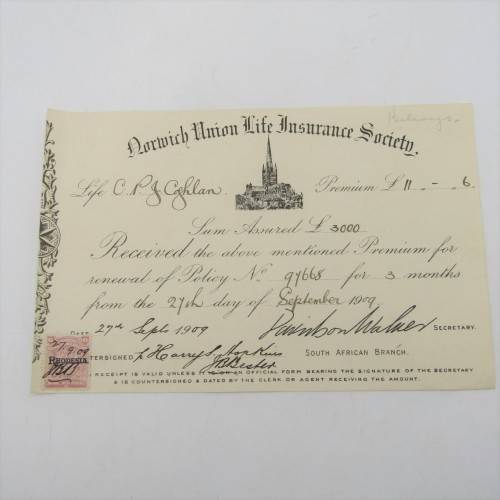 Norwich Union Life Insurance Society.
Life C. P. J. Coghlan. Premium £ 11 - - 6.
Sum Assured £ 3000
Received the above mentioned Premium for
renewal of Policy No 97668 for 3 months
from the 27th day of September 1909.
Date 27th Sept 1909 SECRETARY.
27.9.09
RHODESIA
TERSIGNED Harry S. Hopkins SOUTH AFRICAN BRANCH.
RECEIPT IS VALID UNLESS AN OFFICIAL FORM BEARING THE SIGNATURE OF THE SECRETARY
& IS COUNTERSIGNED & DATED BY THE CLERK OR AGENT RECEIVING THE AMOUNT.